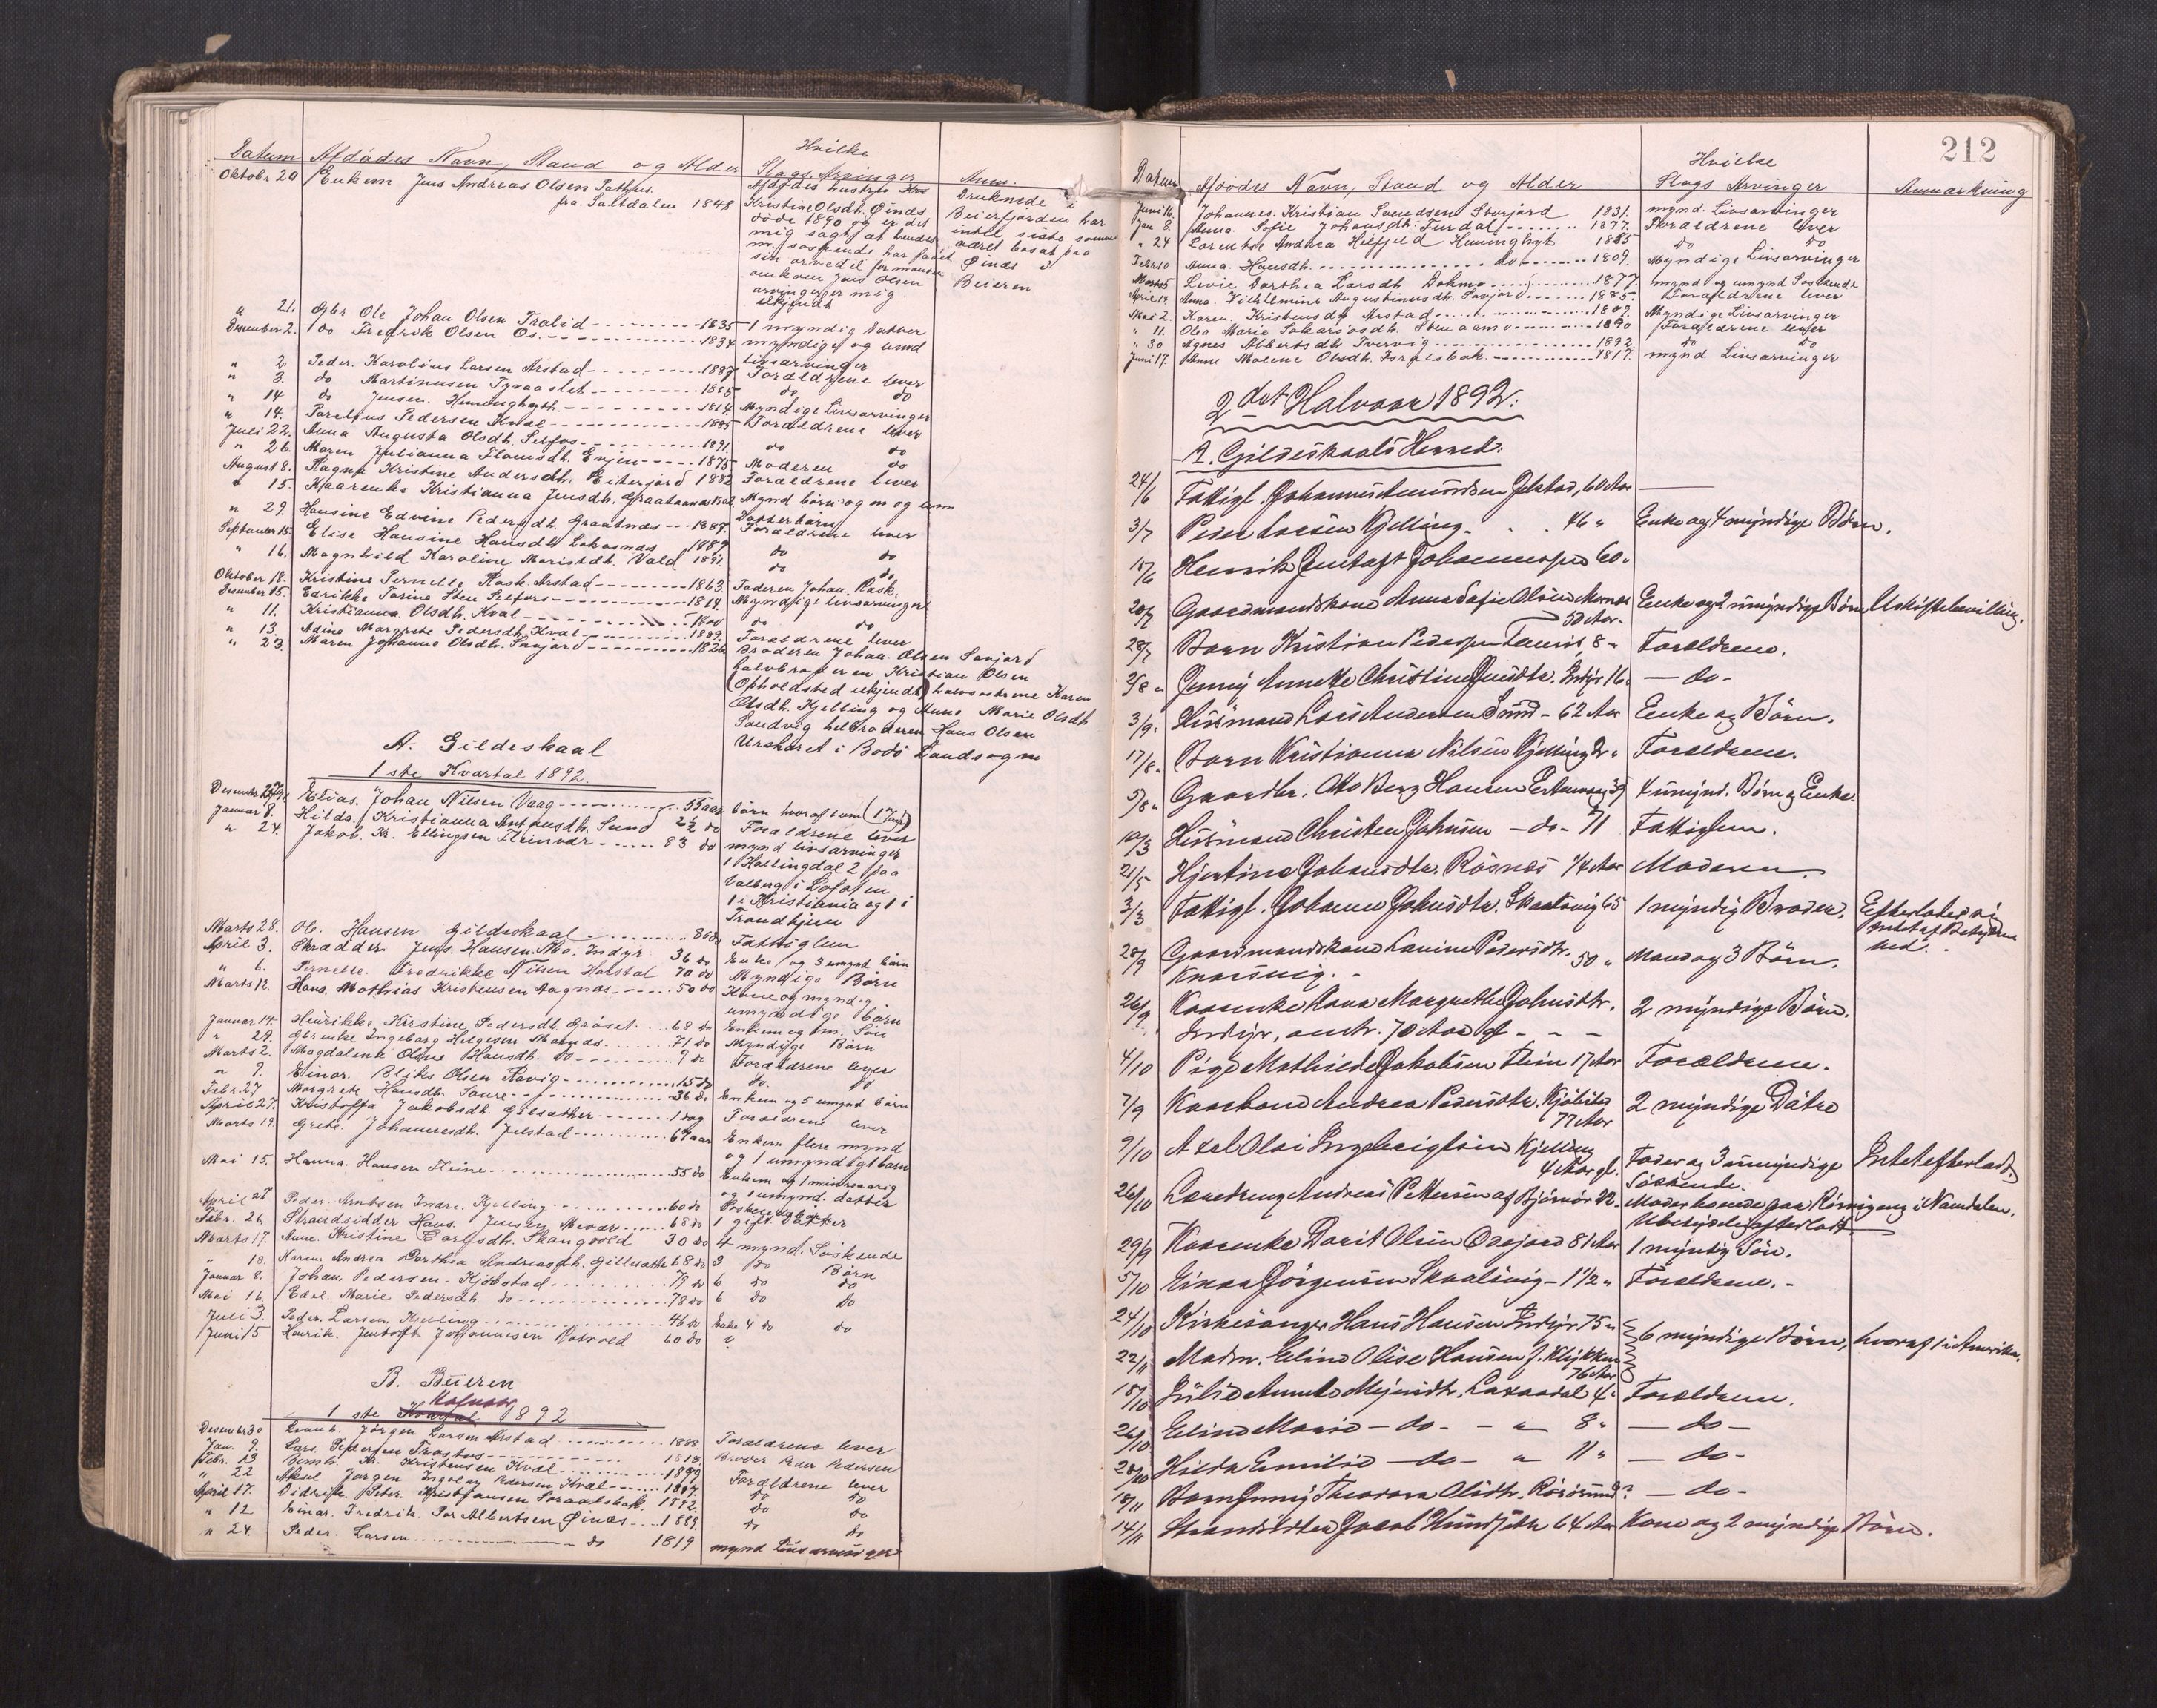 Datum Afdødes Navn, Stand og Alder Hvilke Slags Arvinger Anm.
Oktobr 20 Enkem Jens Andreas Olsen
fra Saltdalen 1848
Afdødes hustru
Kristine Olsdh. Øinæs
døde 1890 og er det
mig sagt at hendes
søskende har faaet
sin arvedel formentlig
enkem Jens Olsen
arvinger er mig
ubekjendt
Druknede i
Beierfjorden har
indtil sidste sommer
været bosat paa
Øinæs i
Beieren
" 21. Gbr Ole Johan Olsen Tralid 1835 1 myndig Datter
Desember 2. do Fredrik Olsen Os. 1834 myndige og umd
livsarvinger
" 2. Peder Karolius Larsen Arstad 1887 Forældrene lever
" 3. do Martinusen 1885 do do
" 14 do Jensen. Hemminghyth 1814 Myndige Livsarvinger
" 14. Parelius Pedersen Kvæl 1885 Forældrene lever
Juli 22. Anna Augusta Olsdh. Selfos 1891. do do
" 26. Maren Julianna Evjen 1875 Moderen do
August 8. Ragna Kristine Andersdh. Eiterjord 1882 Forældrene lever
" 15. Kaarenke Kristianna Jensdh. Graatnæs Mynd børn og m og um
Datterbørn
" 29. Hansine Edvine Pedersdh. Graatnæs 1887. Forældrene lever
September 15. Elise Hansine Hansdh. 1889 do do
" 16. Magnhild Karoline Moristdh. Vold 1891 do do
Oktober 18. Kristine Pernelle Rask. Arstad 1863. Faderen Johan Rask.
Desember 15. Edrikke Torine Sten Selfors 1814. Myndige livsarvinger
" 11. Kristianna Olsdh. Kvæl 1800 do do
" 13. Adine Margrete Pedersdh. Kvæl 1889. Forældrene lever
" 23. Maren Johanna Olsdh. Savjord 1826 Broderen Johan Olsen Savjord
halvbroderen Kristian Olsen
(Opholdsted ukjendt) halvsøstrene Karen
Olsdh. Kjelling og Anne Marie Olsdh
Sandvig helbroderen Hans Olsen
i Bodø Landsogn
A. Gildeskaal
1 ste Kvartal 1892.
Desember Elias Johan Nilsen Vaag 55 aar børn hvoraf 1 um (17 aar)
Januar 8. Hilda Kristianna Antonsdh. Sund 2½ do Forældrene lever
" 24. Jakob Kr. Ellingsen Fleinvær 83 do mynd livsarvinger
1 Hallingdal 2 paa
Valberg i Lofoten
1 i Kristiania og 1 i
Trondhjem
Marts 28. Ol. Hansen Gildeskaal 80 do Fattiglem
April 3. Skrædder Jens Hansen Mo. Indyr 36 do Enke og 3 umynd børn
" 6. Pernelle Fredrikke Nilsen Horstad 70 do Myndige Børn
Marts 12. Hans Mathias Kristensen Aagnæs 50 do Kone og myndig
umyndige børn
Januar 14. Henrikke Kirstine Pedersdh. Grøset 68 do Enkem og 1 m. Søn
" 29. Gbrenke Ingeborg Helgesen 71 do Myndige Børn
Marts 2. Magdalena Oline Hansdh. do 9 do Forældrene lever
" 9. Einar Bliks Olsen Ravig 15 do do do
Febr. 27 Margrete Hansdh. Saure 36 do Enkem og 5 umynd børn
April 27. Kristoffa Jakobsdh. Gilsæther 1 dag Forældrene lever
Marts 19. Grete Johannesdh. Jelstad 67 aar Enkem flere mynd
og 1 umyndigt barn
Mai 15. Hanna Hansen Fleine 55 do Enkem og 1 mindreaarig
og 1 umynd. datter
April 28 Peder Arntsen Indre. Kjelling 60 do
Febr. 26. Strandsidder Hans Jensen 68 do 1 gift Datter
Marts 17. Anne Kristine Skangvold 30 do 4 mynd. Søskende
" 18. Karen Andrea Dorthea Andreasdh. Gillesæther 68 do 3 do Børn
Januar 8. Johan Pedersen Kjøbstad 79 do 6 do do
Mai 16. Edel Marie Pedersdh. do 78 do 6 do do
Juli 3. Peder Larsen Kjelling 46 do Enke 4 do do
Juni 15 Henrik Jentoft Johannesen 60 do "
B. Beieren
1 ste Halvaar 1892
Desember 30 Jørgen Larsen Arstad 1888. Forældrene lever
Jan. 9. Lars Pedersen 1818. Broder Peder Pedersen
Febr. 13 Kr. Kristensen Kvæl 1892 Forældrene lever
" 22 Aksel Jørgen Ingolav Pedersen Kvæl 1887. do do
April 17. Didrik Peter Kristiansen 1892. do do
" 12 Einar Fredrik Albertsen Øinæs 1889. do do
" 24. Peder Larsen do 1819 mynd Livsarvinger
212
Datum Afdødes Navn, Stand og Alder Hvilke Slags Arvinger Anmærkning
Juni 16. Johannes Kristian Svendsen Storjord 1831. mynd. Livsarvinger
Jan 8. Anna Sofie Johansdh. Furdal 1877. Forældrene lever
" 24 Lorentse Andrea Hilfred Hemminghyt 1885 do do
Febr 10 Anna Hansdh. do 1809. Myndige Livsarvinger
Marts 5 Levie Dorthea Larsdh 1877. mynd og umynd Søskende
April 14 Anna Vilhelmine Augustinusdh. Savjord 1885. Forældrene lever
Mai 2. Karen Kristensdh Arstad 1809. Myndige Livsarvinger
" 11. Olea Marie Sakariasdh. Stenaamo 1890 Forældrene lever
" 30 Agnes Albertsdh Tvervig 1892 do do
Juni 17. Anne Malene Olsdh. Israelsbak 1817. mynd Livsarvinger
2det Halvaar 1892:
A. Gildeskaals Herred:
24/6 Fattigl. Johannes Amundsen Jelstad, 60 Aar
3/7 Peder Larsen Kjelling 46 " Enke og 4 myndige Børn.
15/6 Henrik Jentoft Johannessen 60 "
20/7 Gaardmandskone Anna Sofie Olsen Enke og 2 umyndige Børn Uskiftebevilling.
50 Aar
28/7 Barn Kristian Pedersen 8 " Forældrene.
2/8 " Jenny Annette Christine Jensdtr. Indyr 16 " — do -
3/9. Husmand Lars Andersen Sund - 62 Aar Enke og Børn.
17/8. Barn Kristianna Nilsen Kjelling 2 " Forældrene.
5/8 " Gaardbr. Otto Berg Hansen 39 4 umynd. Børn og Enke.
10/3 Husmand Christen Johnsen - do - 71 Fattiglem.
21/5 Hjertine Johansdtr. Røsnes ¼ Aar Moderen
3/3 Fattigl. Johanna Johnsdtr. Skaalsvig 65 1 myndig Broder. Efterlader sig
intet af Betydenhed.
28/9 Gaardmandskone Lavine Pedersdtr. 50 " Mand og 3 Børn.
Knarsvig. -
26/9 Kaarenke Anna Margrethe Johnsdtr. 2 myndige Børn.
Indyr, omtr. 70 Aar gl - - -
4/10 Pige Mathilde Jakobsen Flein 17 Aar Forældrene.
7/9 Kaarkone Andrea Pedersdtr. Kjøbstad 2 myndige Døtre
77 Aar
9/10 Axel Olai Ingebrigtsen Kjelling
4 Aar gl. Fader og 3 umyndige Søskende. Intet efterladt.
26/10 Andreas Pettersen af Bjørnør 22 - Moder boende paa i Namdalen.
Ubetydelig efterladt.
29/9 Kaarenke Dorit Olsen 81 Aar 1 myndig Søn.
5/10 Einar Jørgensen Skaalsvig - 1½ " Forældrene. -
24/10 Kirkesanger Hans Hansen Indyr 75 "
6 myndige Børn, hvoraf 1 i Amerika.
22/11 Madm. Eline Olise Hansen f. Klykken
76 Aar
18/10 Julie Annete 4 " Forældrene.
26/10 Eline Marie - do - - " 8 " - do -
28/10 Hilda Emilie - do - " 11 " - do -
18/11 Barn Jenny Theodora Olsdtr. ? - do -
14/11 Strandsidder Jacob 64 Aar Kone og 2 myndige Børn.